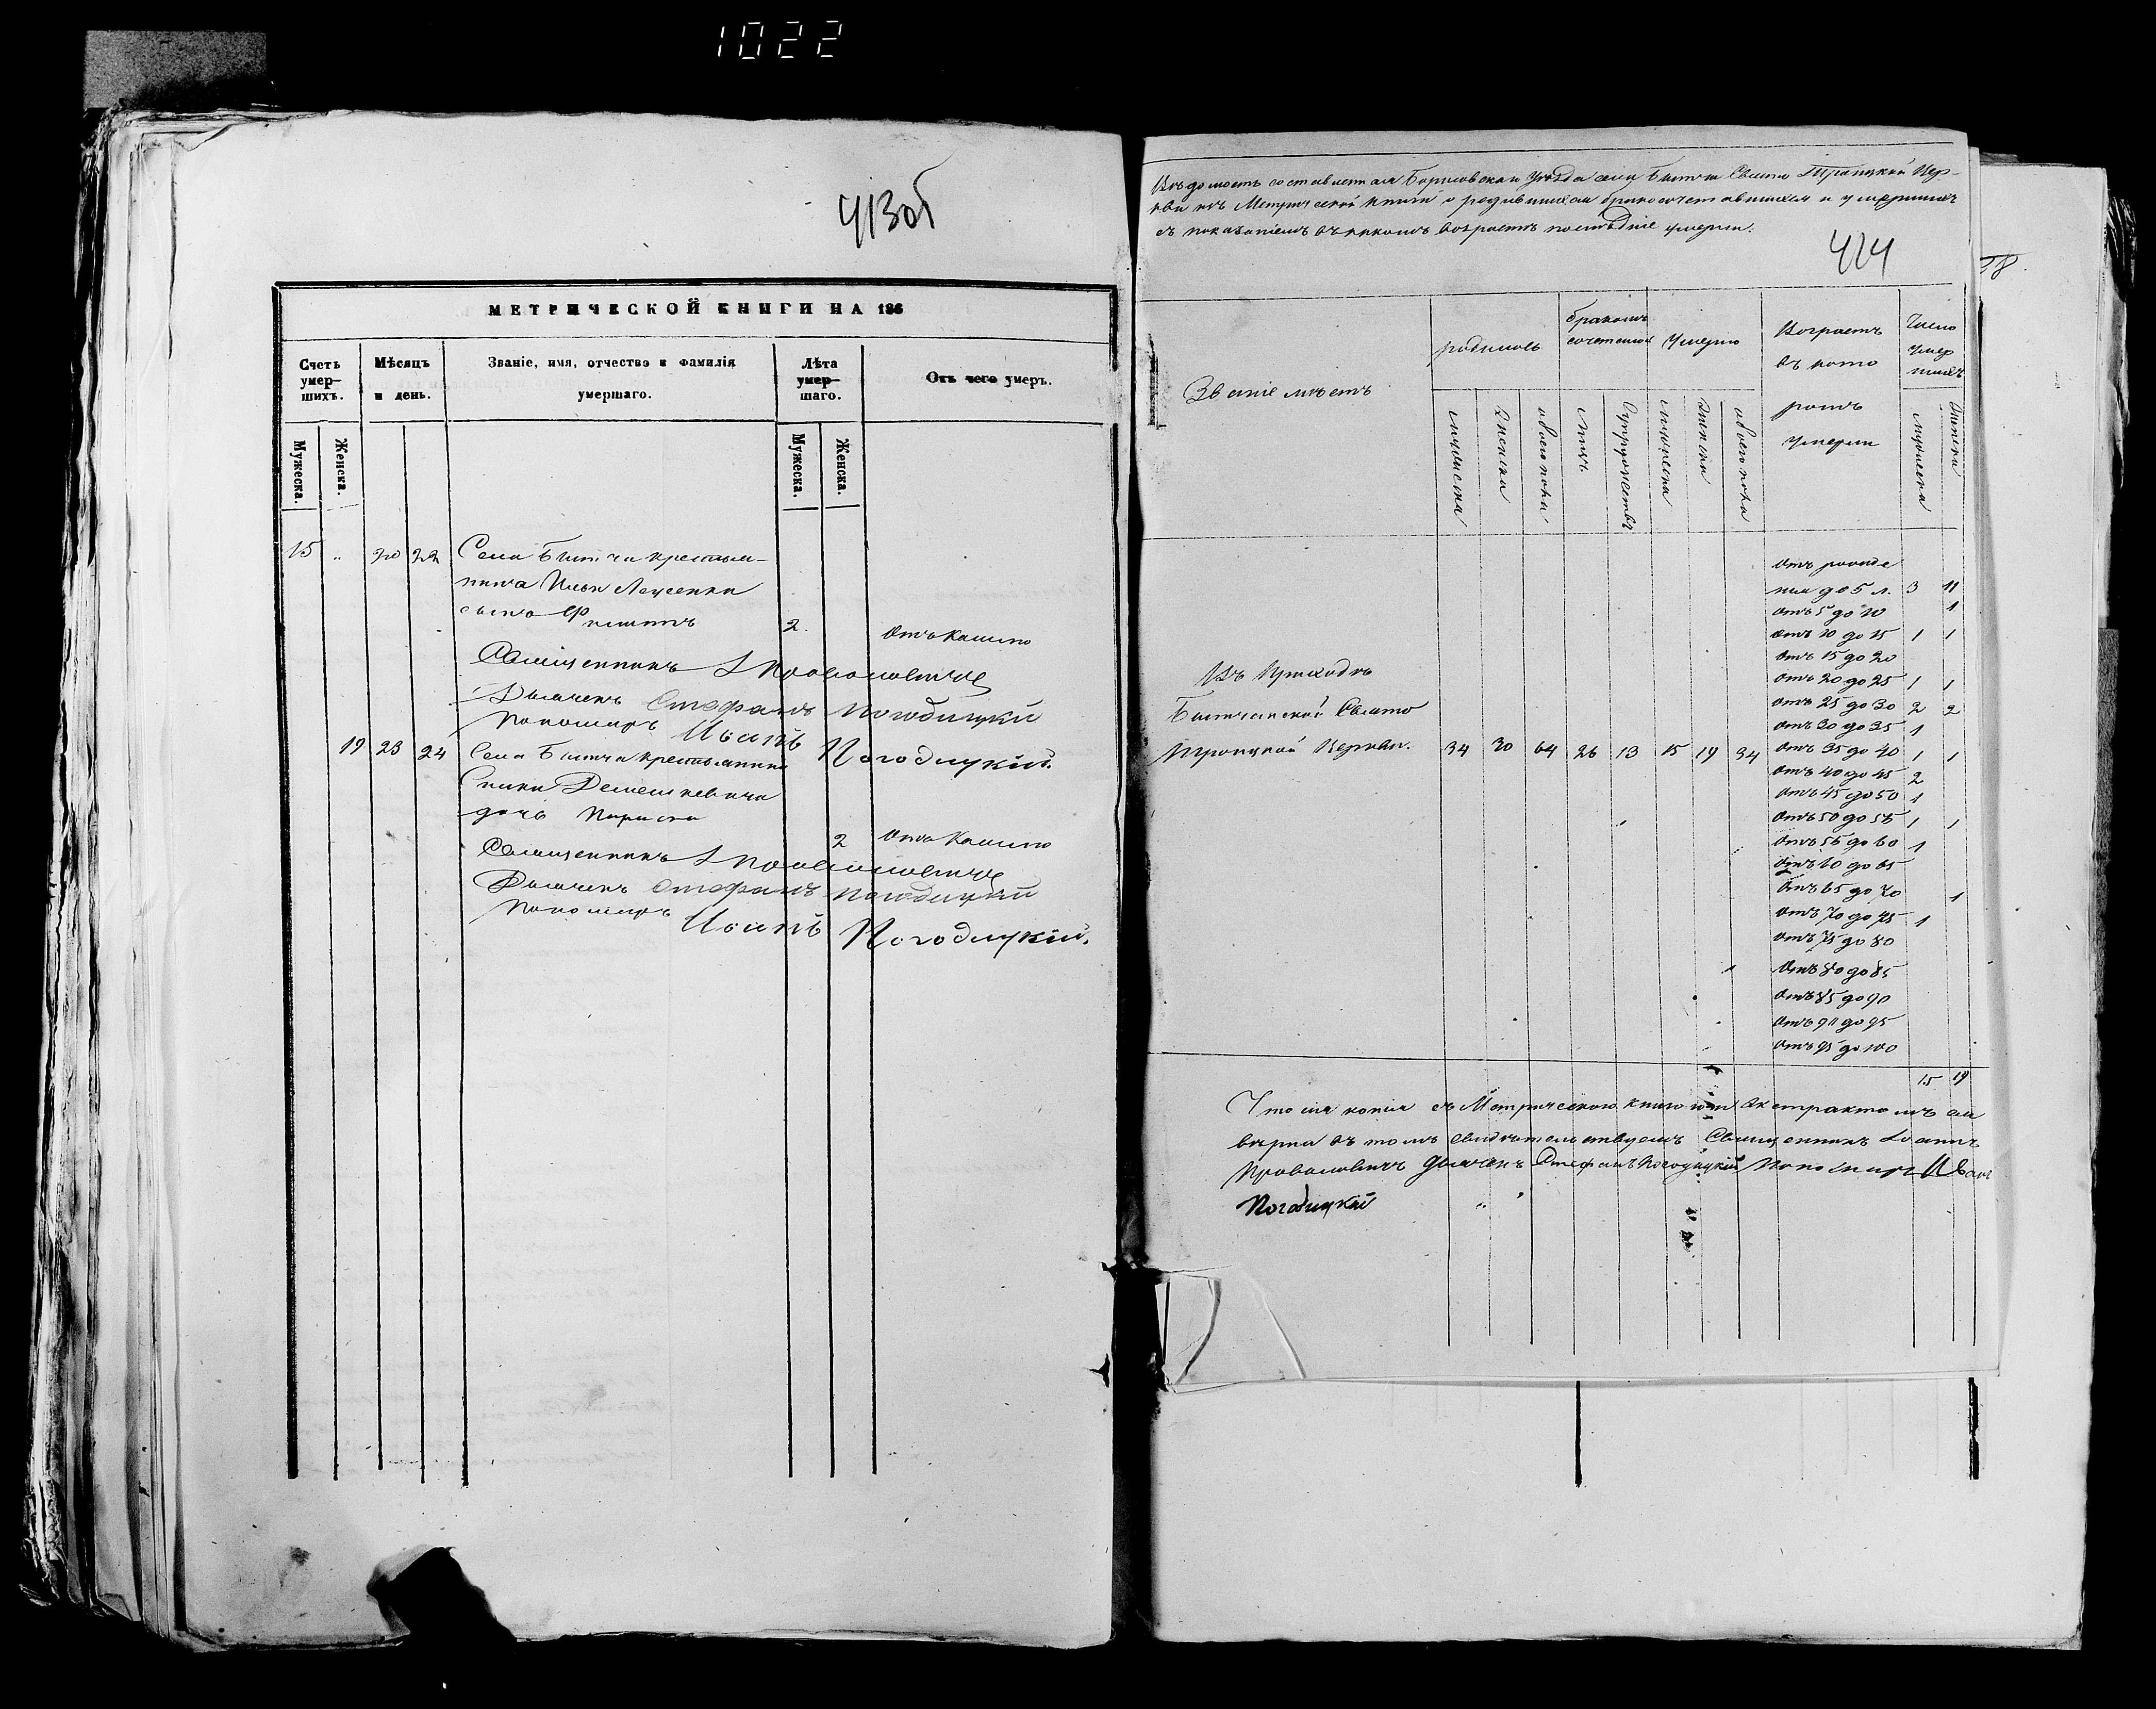 1022
413об
МЕТРИЧЕСКОЙ КНИГИ НА 186
Счетъ умер-шихъ.
Мѣсяцъ и день.
Званіе, имя, отчество и фамилія умершаго.
Лѣта умер-шаго.
Отъ чего умеръ.
Мужеска.
Женска.
Мужеска.
Женска.
15 „ 20 22 Села Битчи крестья-
нина Ильи
сынъ 2. Отъ кашлю
Священникъ І Проволовичъ
Дьячекъ Стефанъ Погодицкій
Пономарь Иванъ Погодицкій.
19 23 24 Села Битчи крестьянина
дочь 2 Отъ кашлю
Священникъ І Проволовичъ
Дьячекъ Стефанъ Погодицкій
Пономарь Иванъ Погодицкій.
Вѣдомость составленная Борисовскаго уѣзда села Битчи Свято Троицкой Цер-
кви изъ Метрической книги о родившихся бракосочетавшихся и умершихъ
съ показаніемъ въ какомъ возрастѣ послѣдніе умерли.
414
58.
Званіе мѣстъ
родилось
бракомъ сочеталось
Умерло
Возрастъ въ кото ромъ умерли
Число умер шихъ
мужеска
женска
обоего пола
лицъ
Супружествъ
мужеска
женска
обоего пола
мужеска
женска
Въ Приходѣ
Битчанской Свято
Троицкой Церкви. 34 30 64 26 13 15 19 34
Отъ рожде
нія до 5 л. 3 11
Отъ 5 до 10 1
Отъ 10 до 15 1 1
Отъ 15 до 20
Отъ 20 до 25 1 1
Отъ 25 до 30 2 2
Отъ 30 до 35 1
Отъ 35 до 40 1 1
Отъ 40 до 45 2
Отъ 45 до 50 1
Отъ 50 до 55 1 1
Отъ 55 до 60 1
Отъ 60 до 65
Отъ 65 до 70 1
Отъ 70 до 75 1
Отъ 75 до 80
Отъ 80 до 85
Отъ 85 до 90
Отъ 90 до 95
Отъ 95 до 100
15 19
Что сія копія съ Метрическою книгою и экстрактомъ ея
вѣрна въ томъ свидѣтельствуемъ Священникъ Іоаннъ
Проволовичъ Дьячекъ Стефанъ Погодицкій Пономарь Иванъ
Погодицкій